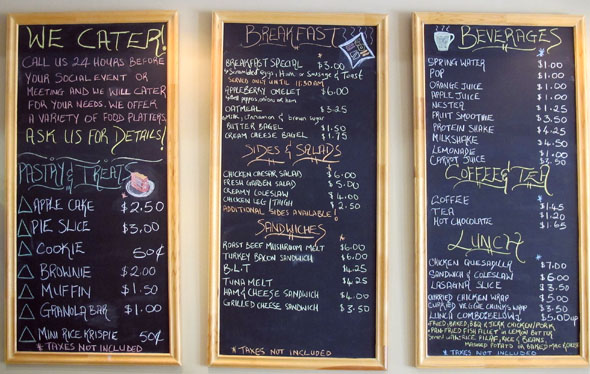 WE CATER!
CALL US 24 HOURS BEFORE
YOUR SOCIAL EVENT OR
MEETING AND WE WILL CATER
FOR YOUR NEEDS. WE OFFER
A VARIETY OF FOOD PLATTERS.
ASK US FOR DETAILS!
PASTRY & TREATS
APPLE CAKE $2.50
PIE SLICE $3.00
COOKIE 50¢
BROWNIE $2.00
MUFFIN $1.50
GRANOLA BAR $1.00
MINI RICE KRISPIE 50¢
* TAXES NOT INCLUDED
BREAKFAST
BREAKFAST SPECIAL $3.00
Scrambled eggs, Ham or Sausage & Toast
SERVED ONLY UNTIL 11:30 AM
APPLEBERRY OMELET $6.00
OATMEAL $3.25
Milk, cinnamon & brown sugar
BUTTER BAGEL $1.50
CREAM CHEESE BAGEL $1.75
SIDES & SALADS
CHICKEN CAESAR SALAD $6.00
FRESH GARDEN SALAD $5.00
CREAMY COLESLAW $4.00
CHICKEN LEG / THIGH $2.50
ADDITIONAL SIDES AVAILABLE!
SANDWICHES
ROAST BEEF MUSHROOM MELT $6.00
TURKEY BACON SANDWICH $6.00
B.L.T $4.25
TUNA MELT $4.25
HAM & CHEESE SANDWICH $4.00
GRILLED CHEESE SANDWICH $3.50
* TAXES NOT INCLUDED
BEVERAGES
SPRING WATER $1.00
POP $1.00
ORANGE JUICE $1.00
APPLE JUICE $1.00
NESTEA $1.25
FRUIT SMOOTHIE $3.50
PROTEIN SHAKE $4.25
MILKSHAKE $4.50
LEMONADE $1.00
CARROT JUICE $3.50
COFFEE & TEA
COFFEE $1.45
TEA $1.20
HOT CHOCOLATE $1.65
LUNCH
CHICKEN QUESADILLA $7.00
SANDWICH & COLESLAW $6.00
LASAGNA SLICE $3.50
CURRIED CHICKEN WRAP $5.00
CURRIED VEGGIE CHUNKS WRAP $3.50
LUNCH COMBO (BELOW) $5.00 up
FRIED, BAKED, BBQ & JERK CHICKEN/PORK
PAN-FRIED FISH FILLET IN LEMON BUTTER
RICE PILAF, RICE & BEANS,
MASHED POTATO OR BAKED MAC & CHEESE
* TAXES NOT INCLUDED